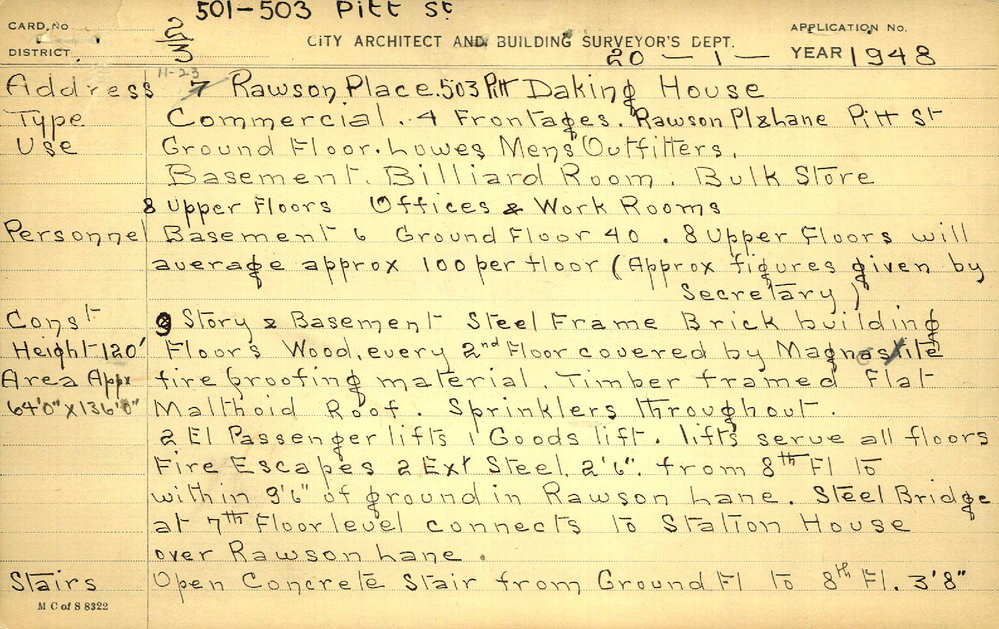 501-503 Pitt St
CARD No
2/3
APPLICATION No.
CITY ARCHITECT AND BUILDING SURVEYOR'S DEPT.
DISTRICT
20 - 1 - YEAR 1948
11-23
Address 7 Rawson Place. 503 Pitt Daking House
Type Commercial. 4 Frontages. Rawson Pl & Lane Pitt St
Use Ground Floor. Lowes Mens Outfitters.
Basement. Billiard Room. Bulk Store
8 Upper Floors Offices & Work Rooms
Personnel Basement 6 Ground Floor 40. 8 Upper Floors will
average approx 100 per floor (Approx figures given by
Secretary)
Const 9 Story & Basement Steel Frame Brick building
Height 120' Floors Wood, every 2nd Floor covered by Magnasite
Area Appx fire proofing material. Timber framed Flat
64'0" x 136'0" Malthoid Roof. Sprinklers throughout.
2 El Passenger lifts 1 Goods lift. lifts serve all floors
Fire Escapes 2 Ext Steel. 2'6". from 8th Fl to
within 9'6" of ground in Rawson Lane. Steel Bridge
at 7th Floor level connects to Station House
over Rawson Lane.
Stairs Open Concrete Stair from Ground Fl to 8th Fl. 3'8"
M C of S 8322